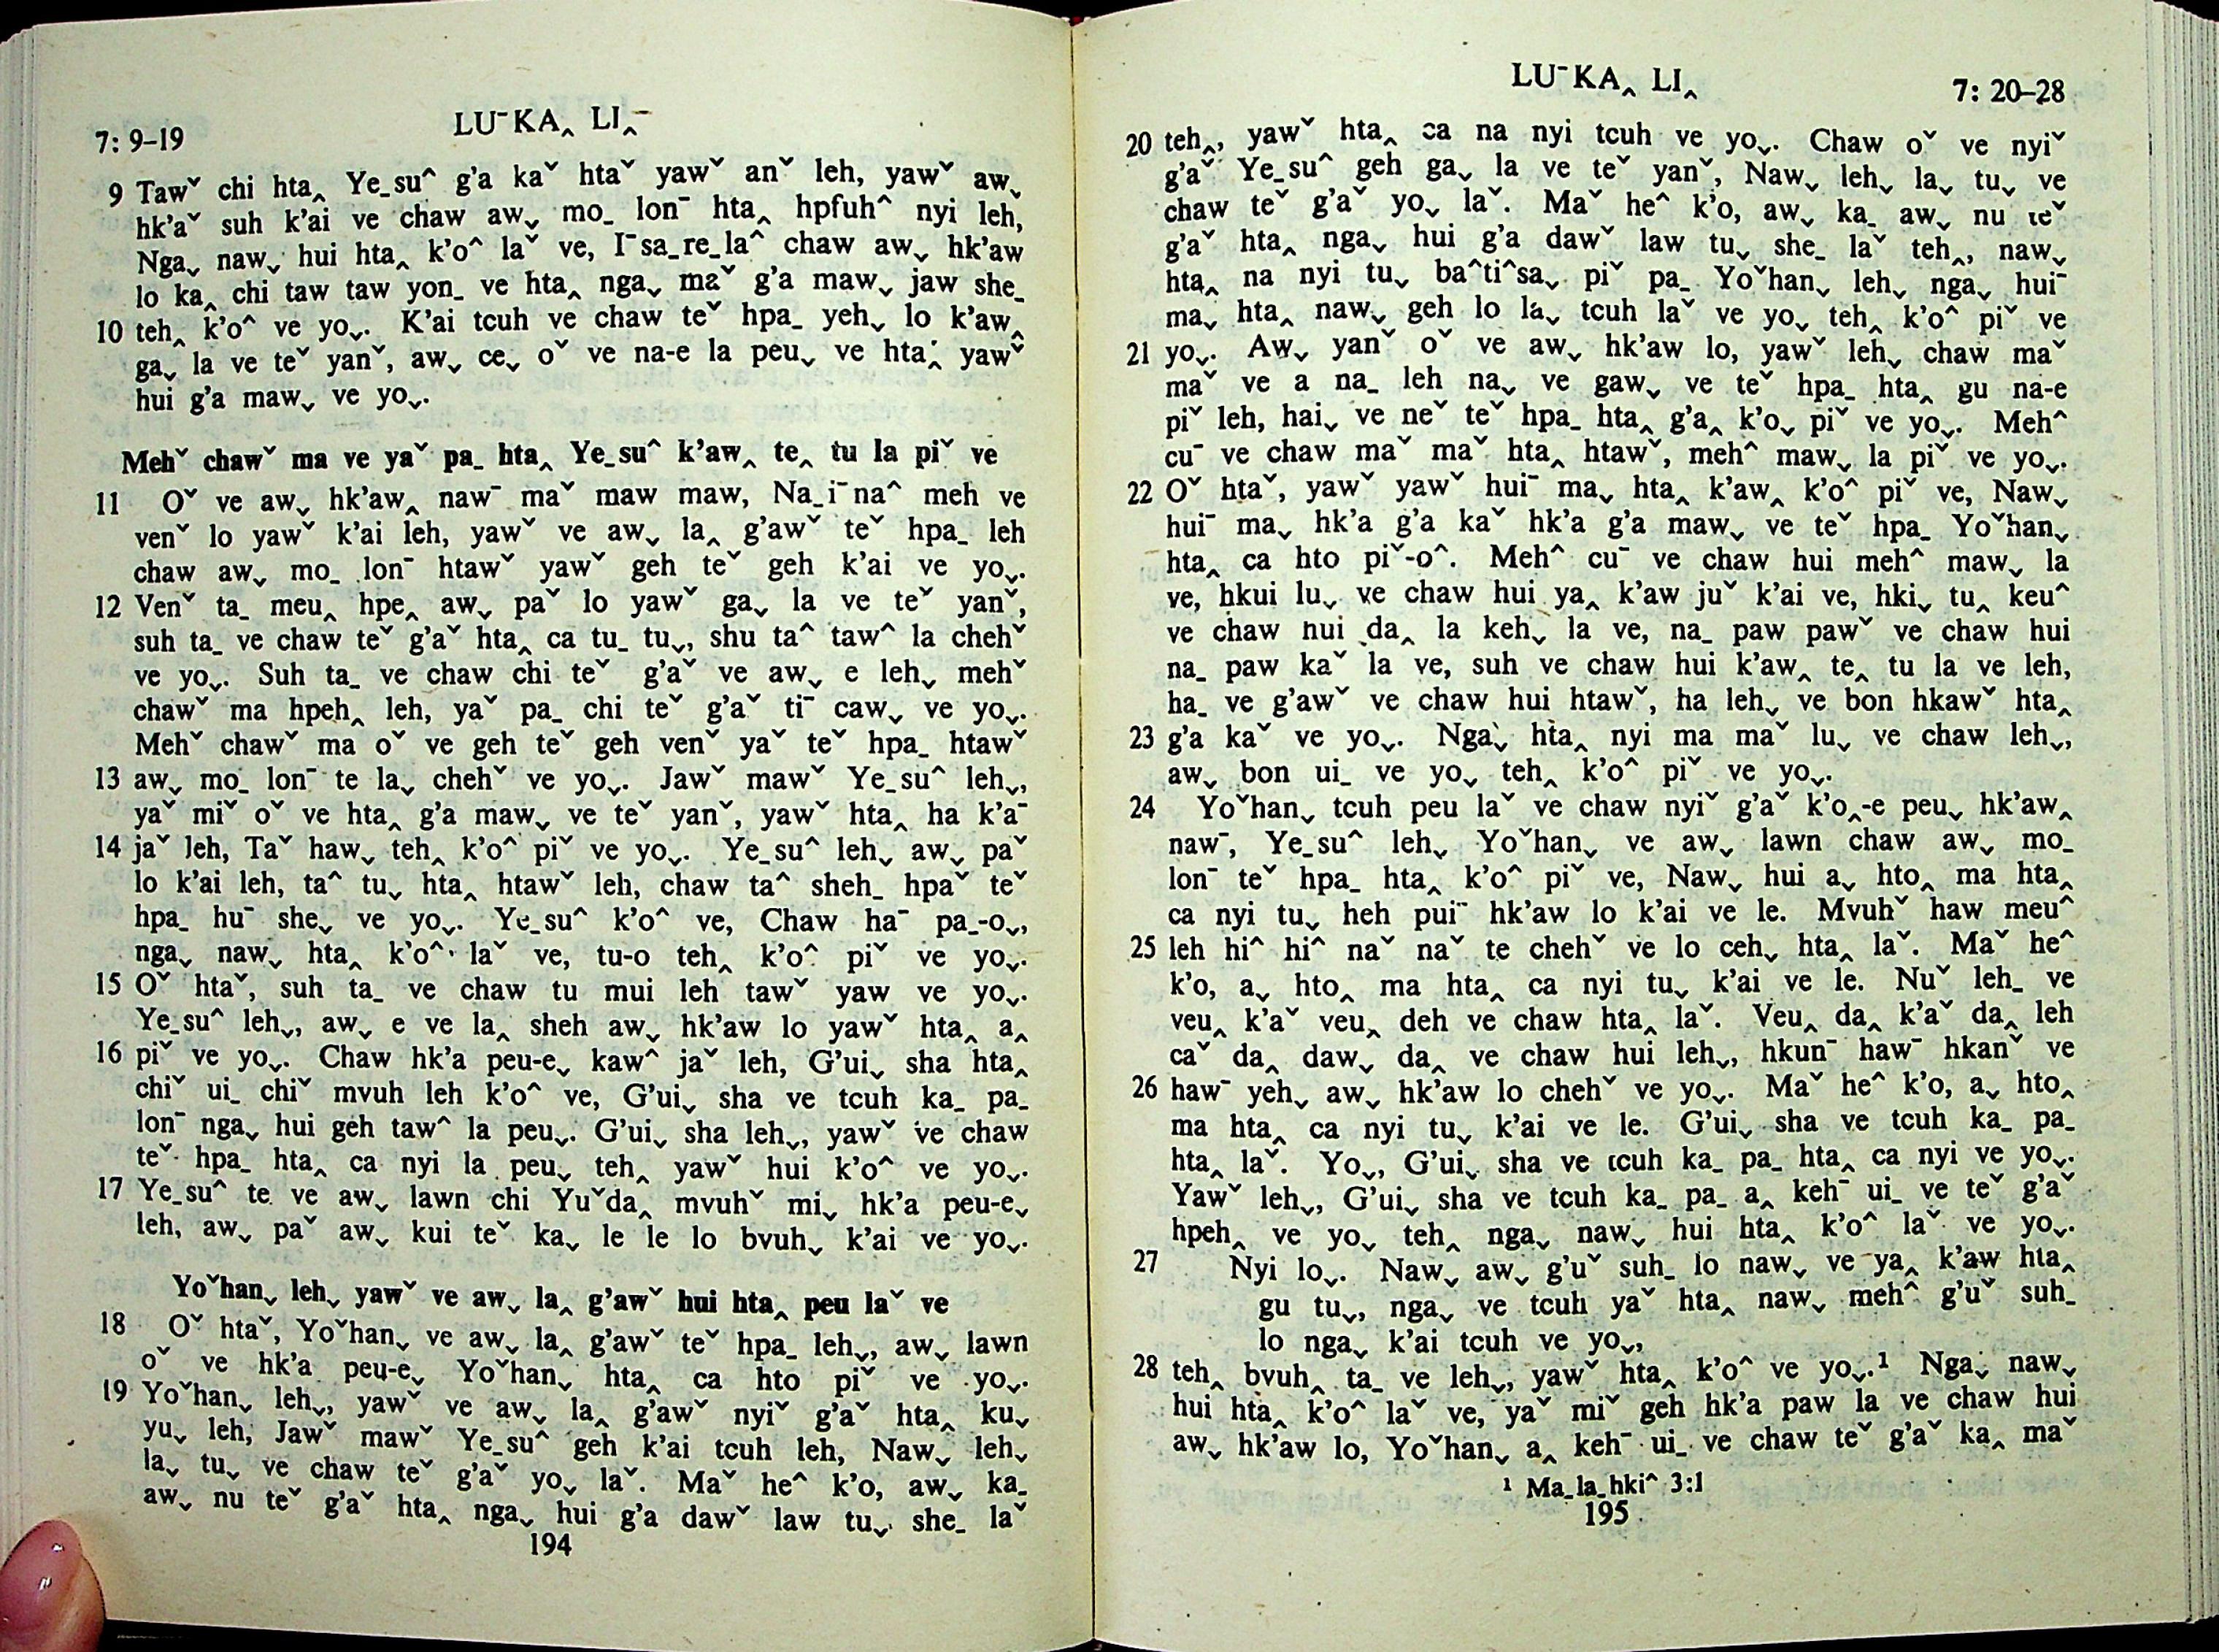 7: 9–19
LUˉKA‸ LI‸ˉ
9 Tawˇ chi hta‸ Ye_su^ g'a kaˇ htaˇ yawˇ anˇ leh, yawˇ aw⌄
hk'aˇ suh k'ai ve chaw aw⌄ mo_ lonˉ hta‸ hpfuh^ nyi leh,
Nga⌄ naw⌄ hui hta‸ k'o^ laˇ ve, Iˉsa_re_la^ chaw aw⌄ hk'aw
lo ka‸ chi taw taw yon_ ve hta‸ nga⌄ maˇ g'a maw⌄ jaw she_
10 teh‸ k'o^ ve yo⌄. K'ai tcuh ve chaw teˇ hpa_ yeh⌄ lo k'aw‸
ga⌄ la ve teˇ yanˇ, aw⌄ ce⌄ oˇ ve na-e la peu⌄ ve hta‸ yawˇ
hui g'a maw⌄ ve yo⌄.
Mehˇ chawˇ ma ve yaˇ pa_ hta‸ Ye_su^ k'aw‸ te‸ tu la piˇ ve
11 Oˇ ve aw⌄ hk'aw‸ nawˉ maˇ maw maw, Na_iˉna^ meh ve
venˇ lo yawˇ k'ai leh, yawˇ ve aw⌄ la‸ g'awˇ teˇ hpa_ leh
chaw aw⌄ mo_ lonˉ htawˇ yawˇ geh teˇ geh k'ai ve yo⌄.
12 Venˇ ta_ meu‸ hpe‸ aw⌄ paˇ lo yawˇ ga⌄ la ve teˇ yanˇ,
suh ta_ ve chaw teˇ g'aˇ hta‸ ca tu_ tu⌄, shu ta^ taw^ la chehˇ
ve yo⌄. Suh ta_ ve chaw chi teˇ g'aˇ ve aw⌄ e leh⌄ mehˇ
chawˇ ma hpeh‸ leh, yaˇ pa_ chi teˇ g'aˇ tiˉ caw⌄ ve yo⌄.
Mehˇ chawˇ ma oˇ ve geh teˇ geh venˇ yaˇ teˇ hpa_ htawˇ
13 aw⌄ mo_ lonˉ te la⌄ chehˇ ve yo⌄. Jawˇ mawˇ Ye_su^ leh⌄,
yaˇ miˇ oˇ ve hta‸ g'a maw⌄ ve teˇ yanˇ, yawˇ hta‸ ha k'aˉ
14 jaˇ leh, Taˇ haw⌄ teh‸ k'o^ piˇ ve yo⌄. Ye_su^ leh⌄ aw⌄ paˇ
lo k'ai leh, ta^ tu⌄ hta‸ htawˇ leh, chaw ta^ sheh_ hpaˇ teˇ
hpa_ huˉ she⌄ ve yo⌄. Ye_su^ k'o^ ve, Chaw haˉ pa_-o⌄,
nga⌄ naw⌄ hta‸ k'o^ laˇ ve, tu-o teh‸ k'o^ piˇ ve yo⌄.
15 Oˇ htaˇ, suh ta_ ve chaw tu mui leh tawˇ yaw ve yo⌄.
Ye_su^ leh⌄, aw⌄ e ve la‸ sheh aw⌄ hk'aw lo yawˇ hta‸ a‸
16 piˇ ve yo⌄. Chaw hk'a peu-e⌄ kaw^ jaˇ leh, G'ui⌄ sha hta‸
chiˇ ui_ chiˇ mvuh leh k'o^ ve, G'ui⌄ sha ve tcuh ka_ pa_
lonˉ nga⌄ hui geh taw^ la peu⌄. G'ui⌄ sha leh⌄, yawˇ ve chaw
teˇ hpa_ hta‸ ca nyi la peu⌄ teh‸ yawˇ hui k'o^ ve yo⌄.
17 Ye_su^ te ve aw⌄ lawn chi Yuˇda‸ mvuhˇ mi⌄ hk'a peu-e⌄
leh, aw⌄ paˇ aw⌄ kui teˇ ka⌄ le le lo bvuh⌄ k'ai ve yo⌄.
Yoˇhan⌄ leh⌄ yawˇ ve aw⌄ la‸ g'awˇ hui hta‸ peu laˇ ve
18 Oˇ htaˇ, Yoˇhan⌄ ve aw⌄ la‸ g'awˇ teˇ hpa_ leh⌄, aw⌄ lawn
oˇ ve hk'a peu-e⌄ Yoˇhan⌄ hta‸ ca hto piˇ ve yo⌄.
19 Yoˇhan⌄ leh⌄, yawˇ ve aw⌄ la‸ g'awˇ nyiˇ g'aˇ hta‸ ku⌄
yu⌄ leh, Jawˇ mawˇ Ye_su^ geh k'ai tcuh leh, Naw⌄ leh⌄
la⌄ tu⌄ ve chaw teˇ g'aˇ yo⌄ laˇ. Maˇ he^ k'o, aw⌄ ka_
aw⌄ nu teˇ g'aˇ hta‸ nga⌄ hui g'a dawˇ law tu⌄ she_ laˇ
194
LUˉKA‸ LI‸
7: 20–28
20 teh‸, yawˇ hta‸ ca na nyi tcuh ve yo⌄. Chaw oˇ ve nyiˇ
g'aˇ Ye_su^ geh ga⌄ la ve teˇ yanˇ, Naw⌄ leh⌄ la⌄ tu⌄ ve
chaw teˇ g'aˇ yo⌄ laˇ. Maˇ he^ k'o, aw⌄ ka_ aw⌄ nu teˇ
g'aˇ hta‸ nga⌄ hui g'a dawˇ law tu⌄ she_ laˇ teh‸, naw⌄
hta‸ na nyi tu⌄ ba^ti^sa⌄ piˇ pa_ Yoˇhan⌄ leh⌄ nga⌄ huiˉ
ma⌄ hta‸ naw⌄ geh lo la⌄ tcuh laˇ ve yo⌄ teh‸ k'o^ piˇ ve
21 yo⌄. Aw⌄ yanˇ oˇ ve aw⌄ hk'aw lo, yawˇ leh⌄ chaw maˇ
maˇ ve a na_ leh na⌄ ve gaw⌄ ve teˇ hpa_ hta‸ gu na-e
piˇ leh, hai⌄ ve neˇ teˇ hpa_ hta‸ g'a‸ k'o⌄ piˇ ve yo⌄. Meh^
cuˉ ve chaw maˇ maˇ hta‸ htawˇ, meh^ maw⌄ la piˇ ve yo⌄.
22 Oˇ htaˇ, yawˇ yawˇ huiˉ ma⌄ hta‸ k'aw‸ k'o^ piˇ ve, Naw⌄
huiˉ ma⌄ hk'a g'a kaˇ hk'a g'a maw⌄ ve teˇ hpa_ Yoˇhan⌄
hta‸ ca hto piˇ-o^. Meh^ cuˉ ve chaw hui meh^ maw⌄ la
ve, hkui lu⌄ ve chaw hui ya‸ k'aw juˇ k'ai ve, hki⌄ tu‸ keu^
ve chaw hui da‸ la keh⌄ la ve, na_ paw pawˇ ve chaw hui
na_ paw kaˇ la ve, suh ve chaw hui k'aw‸ te‸ tu la ve leh,
ha_ ve g'awˇ ve chaw hui htawˇ, ha leh⌄ ve bon hkawˇ hta‸
23 g'a kaˇ ve yo⌄. Nga⌄ hta‸ nyi ma maˇ lu⌄ ve chaw leh⌄,
aw⌄ bon ui_ ve yo⌄ teh‸ k'o^ piˇ ve yo⌄.
24 Yoˇhan⌄ tcuh peu laˇ ve chaw nyiˇ g'aˇ k'o‸-e peu⌄ hk'aw‸
nawˉ, Ye_su^ leh⌄ Yoˇhan⌄ ve aw⌄ lawn chaw aw⌄ mo_
lonˉ teˇ hpa_ hta‸ k'o^ piˇ ve, Naw⌄ hui a⌄ hto‸ ma hta‸
ca nyi tu⌄ heh puiˉ hk'aw lo k'ai ve le. Mvuhˇ haw meu^
25 leh hi^ hi^ naˇ naˇ te chehˇ ve lo ceh⌄ hta‸ laˇ. Maˇ he^
k'o, a⌄ hto‸ ma hta‸ ca nyi tu⌄ k'ai ve le. Nuˇ leh_ ve
veu‸ k'aˇ veu‸ deh ve chaw hta‸ laˇ. Veu‸ da‸ k'aˇ da‸ leh
caˇ da‸ daw⌄ da‸ ve chaw hui leh⌄, hkunˉ hawˉ hkanˇ ve
26 hawˉ yeh⌄ aw⌄ hk'aw lo chehˇ ve yo⌄. Maˇ he^ k'o, a⌄ hto‸
ma hta‸ ca nyi tu⌄ k'ai ve le. G'ui⌄ sha ve tcuh ka_ pa_
hta‸ laˇ. Yo⌄, G'ui⌄ sha ve tcuh ka_ pa_ hta‸ ca nyi ve yo⌄.
Yawˇ leh⌄, G'ui⌄ sha ve tcuh ka_ pa_ a‸ kehˉ ui_ ve teˇ g'aˇ
hpeh‸ ve yo⌄ teh‸ nga⌄ naw⌄ hui hta‸ k'o^ laˇ ve yo⌄.
27 Nyi lo⌄. Naw⌄ aw⌄ g'uˇ suh_ lo naw⌄ ve ya‸ k'aw hta‸
gu tu⌄, nga⌄ ve tcuh yaˇ hta‸ naw⌄ meh^ g'uˇ suh_
lo nga⌄ k'ai tcuh ve yo⌄,
28 teh‸ bvuh‸ ta_ ve leh⌄, yawˇ hta‸ k'o^ ve yo⌄.¹ Nga⌄ naw⌄
hui hta‸ k'o^ laˇ ve, yaˇ miˇ geh hk'a paw la ve chaw hui
aw⌄ hk'aw lo, Yoˇhan⌄ a‸ kehˉ ui_ ve chaw teˇ g'aˇ ka‸ maˇ
¹ Ma_la_hki^ 3:1
195